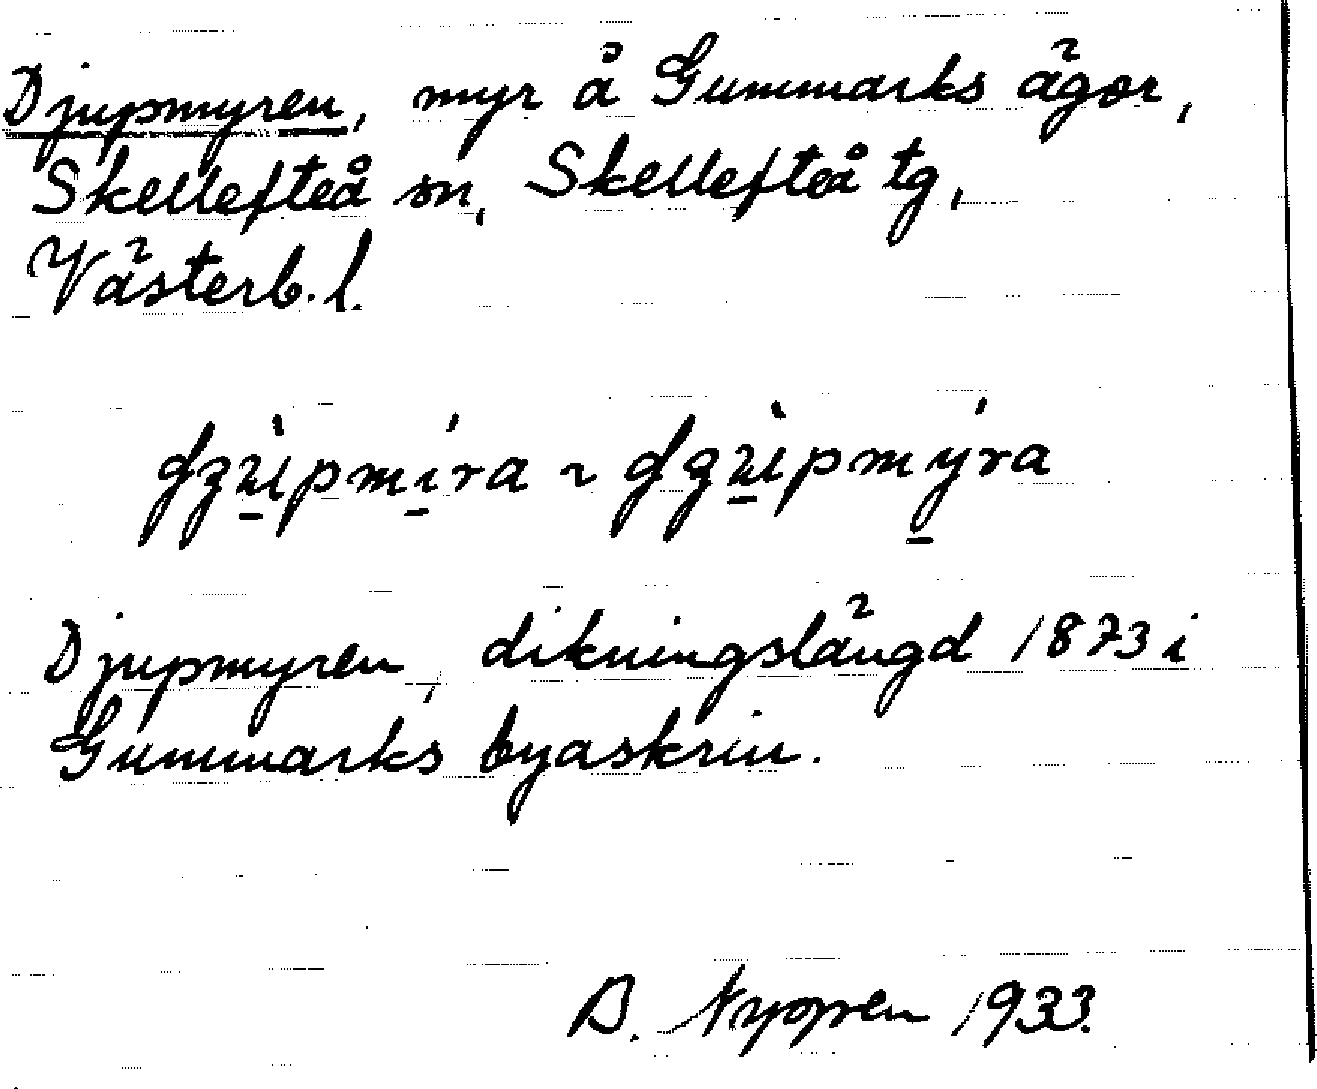 Djupmyren, myr å Gummarks ägor,
Skellefteå sn, Skellefteå tg,
Västerb. l.
Djupmyren, dikningslängd 1873 i
Gummarks byaskrin.
B. 1933.